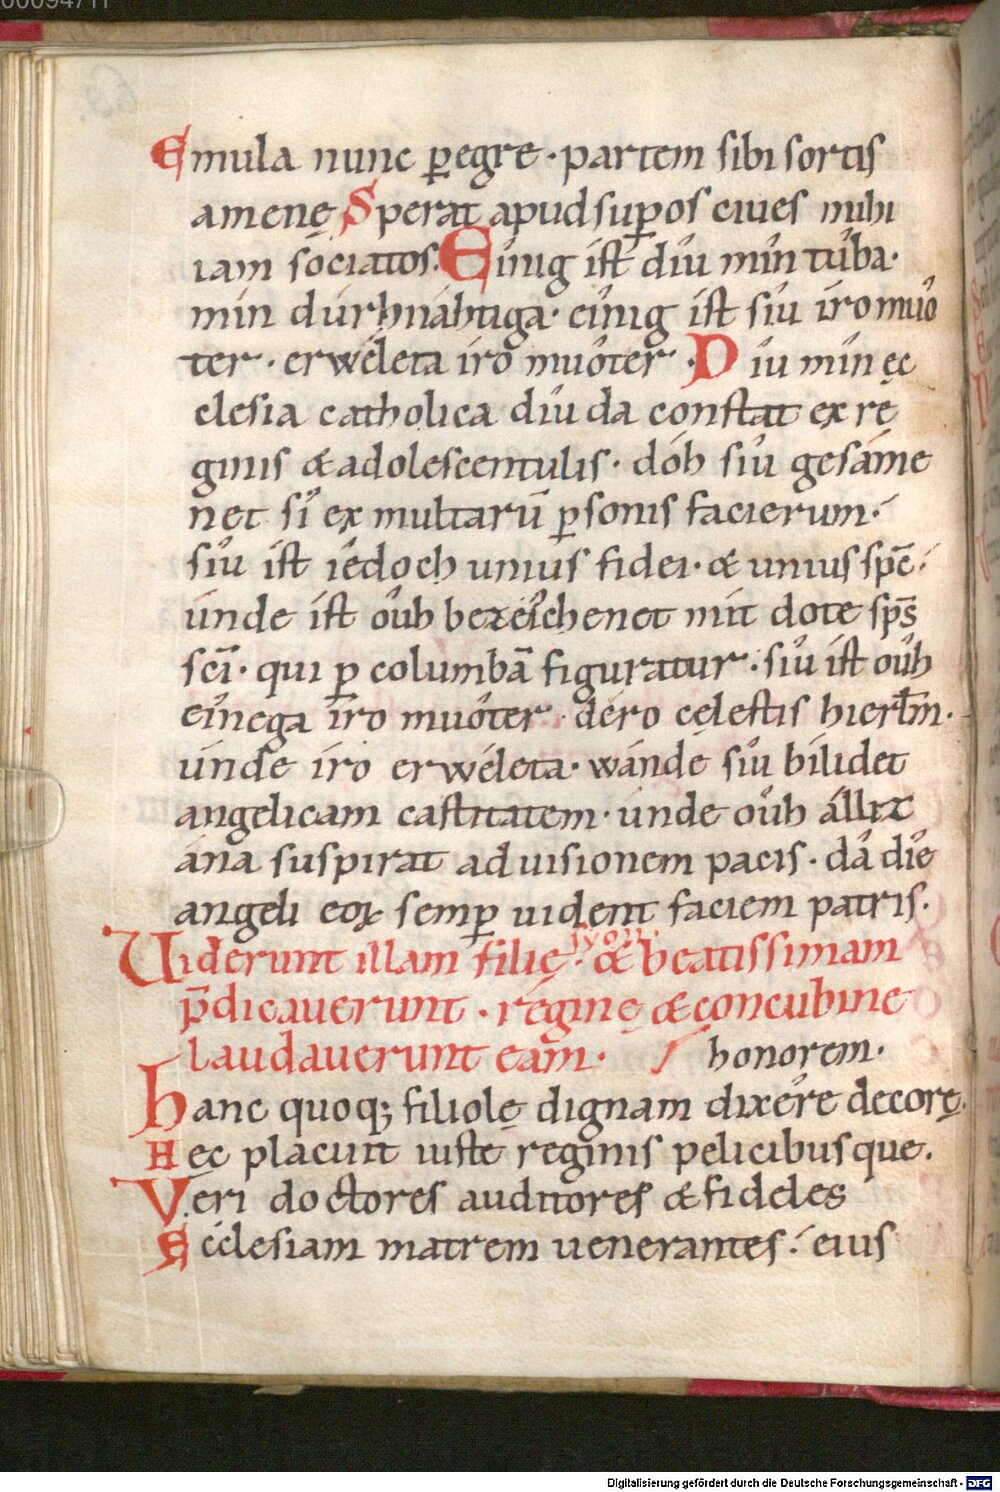 00094711
Emula nunc p̱egre · partem sibi sortis
amenę Sperat apud sup̱os ciues mihi
iam sociatos. Einig ist diu min tuba·
min durhnahtiga· einig ist siu iro muo
ter · erweleta iro muoter · Diu min ec
clesia catholica diu da constat ex rę
ginis & adolescentulis· doh siu gesame
net si ex multarū p̱sonis facierum·
siu ist iedoch unius fidei· & unius spē̄i·
unde ist ouh bezeichenet mit dote sp̄s
scī· qui p̱ columbā figuratur· siu ist ouh
einega iro muoter· dero cęlestis hierłm·
unde iro erweleta· wande siu bilidet
angelicam castitatem· unde ouh allez
ana suspirat ad uisionem pacis· da die
angeli eoꝝ semp̱ uident faciem patris·
syon·
Uiderunt illam filię· & beatissimam
p̄dicauerunt · reginę & concubine
laudauerunt eam· / honorem·
hanc quoq; filiolę dignam dixere decorę·
Hec placuit iuste reginis pelicibusque.
Veri doctores auditores & fideles
Ecclesiam matrem uenerantes· eius
Digitalisierung gefördert durch die Deutsche Forschungsgemeinschaft - DFG